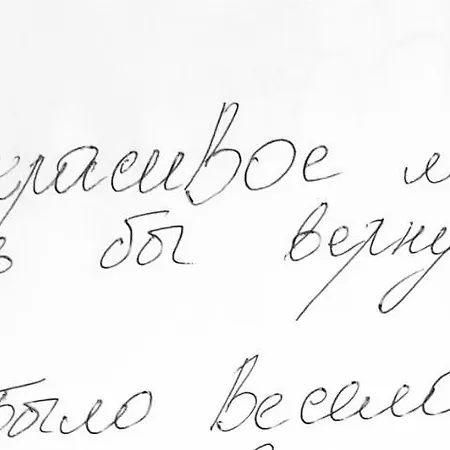 красивое м
в бы верну
было весело